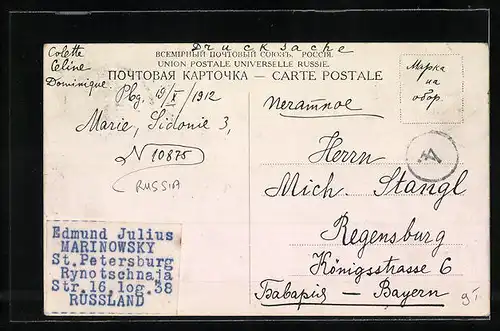 Drucksache
Colette
Celine
Dominique
ВСЕМІРНЫЙ ПОЧТОВЫЙ СОЮЗЪ. РОССІЯ.
UNION POSTALE UNIVERSELLE RUSSIE.
ПОЧТОВАЯ КАРТОЧКА — CARTE POSTALE
Марка
на
обор.
Pbg. 19/X 1912
Печатное
Marie, Sidonie 3,
N 10875
RUSSIA
Herrn
Mich. Stangl
Regensburg
Königsstrasse 6
Баварія — Bayern
Edmund Julius
MARINOWSKY
St. Petersburg
Rynotschnaja
Str. 16, log. 38
RUSSLAND